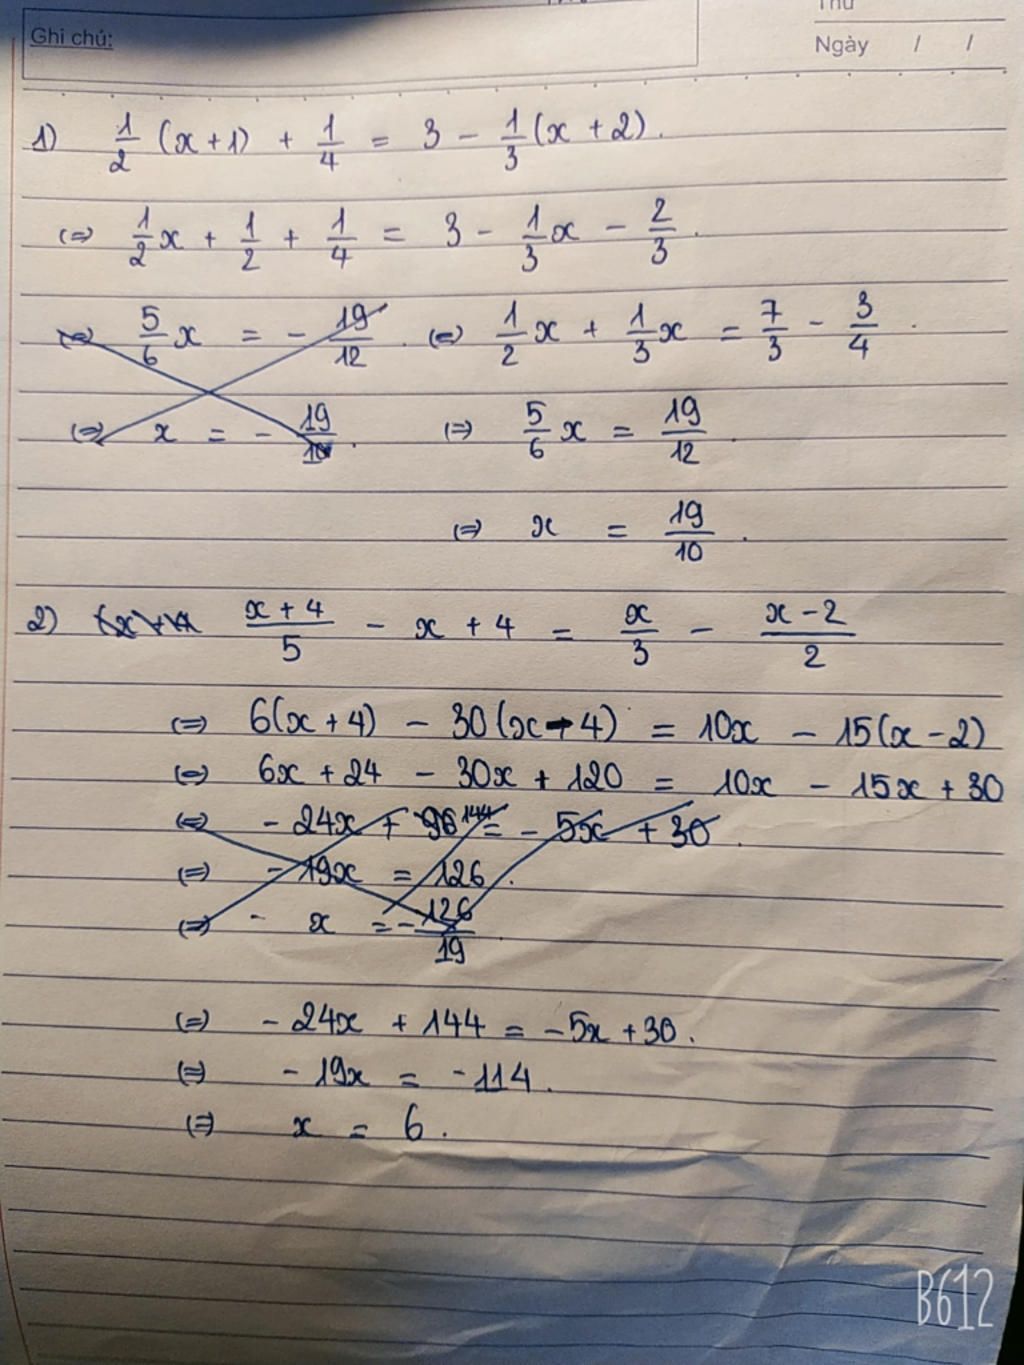 Thứ
Ghi chú:
Ngày / /
1) 1/2 (x+1) + 1/4 = 3 - 1/3 (x+2).
(=) 1/2 x + 1/2 + 1/4 = 3 - 1/3 x - 2/3.
(=) 5/6 x = - 19/12 . (=) 1/2 x + 1/3 x = 7/3 - 3/4 .
(=) x = - 19/10 . (=) 5/6 x = 19/12 .
(=) x = 19/10 .
2) (x+4 (x+4)/5 - x + 4 = x/3 - (x-2)/2
(=) 6(x+4) - 30(x-4) = 10x - 15(x-2)
(=) 6x + 24 - 30x + 120 = 10x - 15x + 30
(=) - 24x + 96 144 = - 5x + 30 .
(=) - 19x = 126 .
(=) - x = - 126/19 .
(=) - 24x + 144 = -5x + 30 .
(=) - 19x = -114 .
(=) x = 6 .
B612